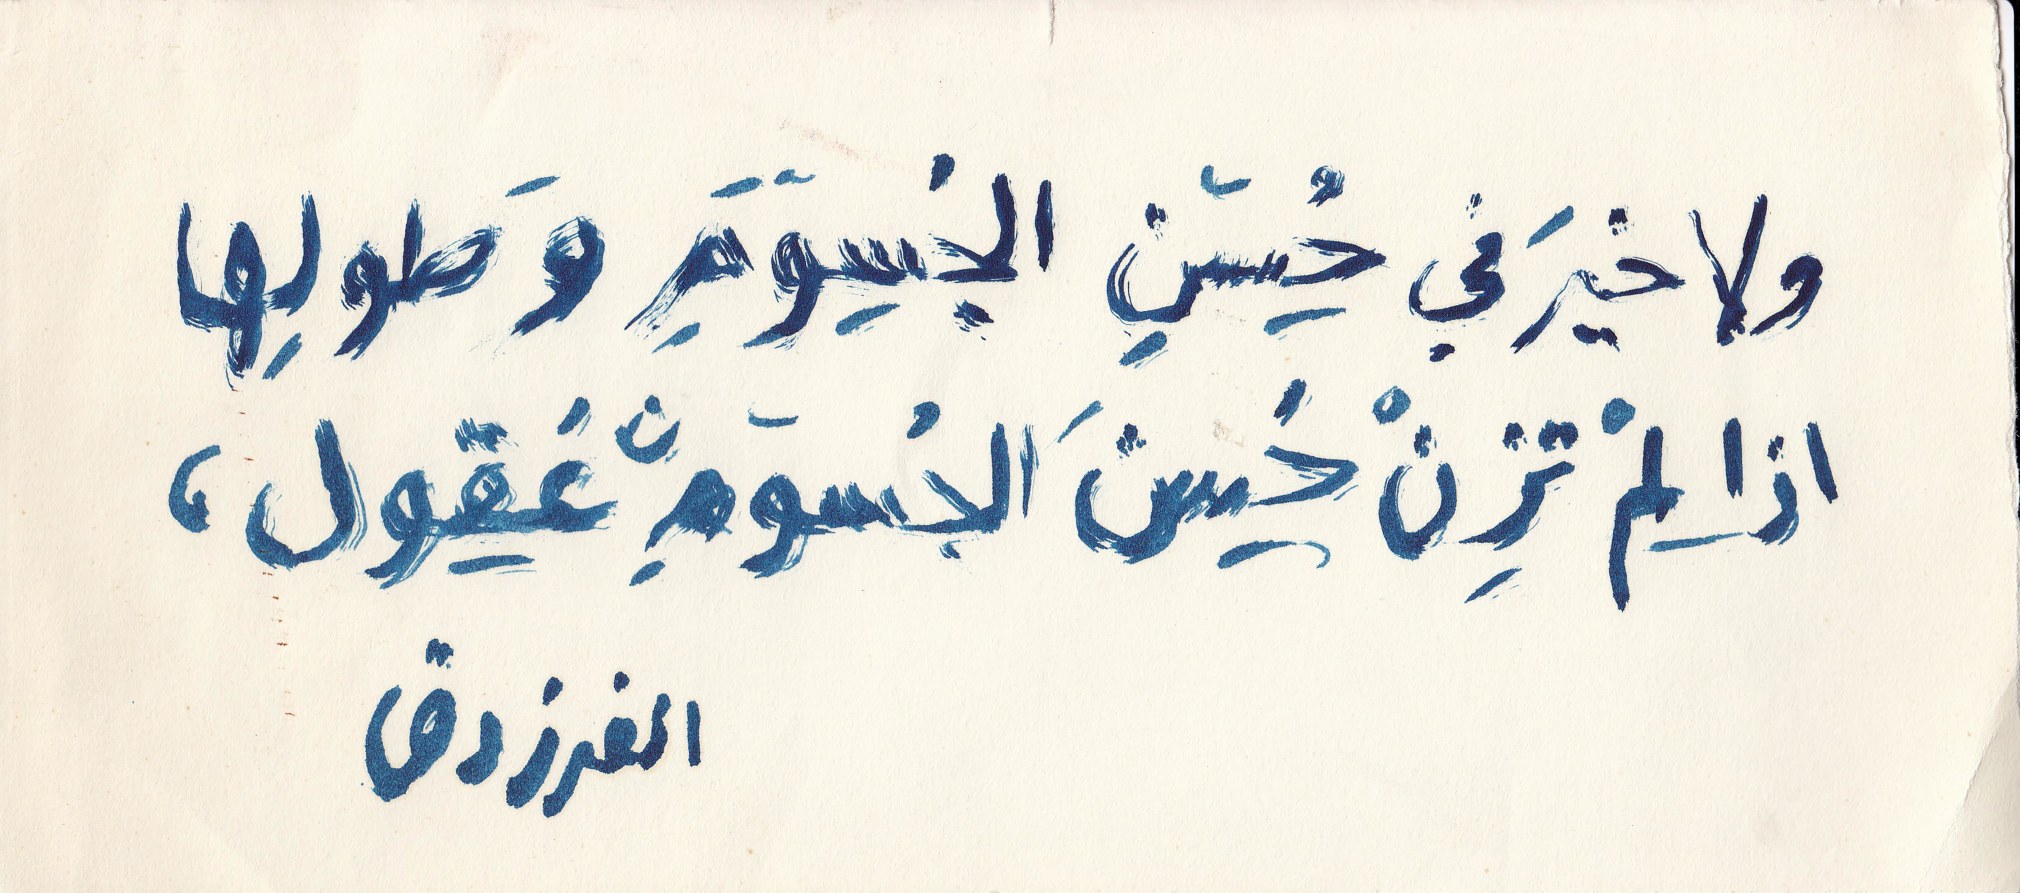 ولا خَيْرَ في حُسنِ الجُسومِ وَطولِها
اذا لمْ تَزِنْ حُسنَ الجُسومِ عُقول،
الفرزدق